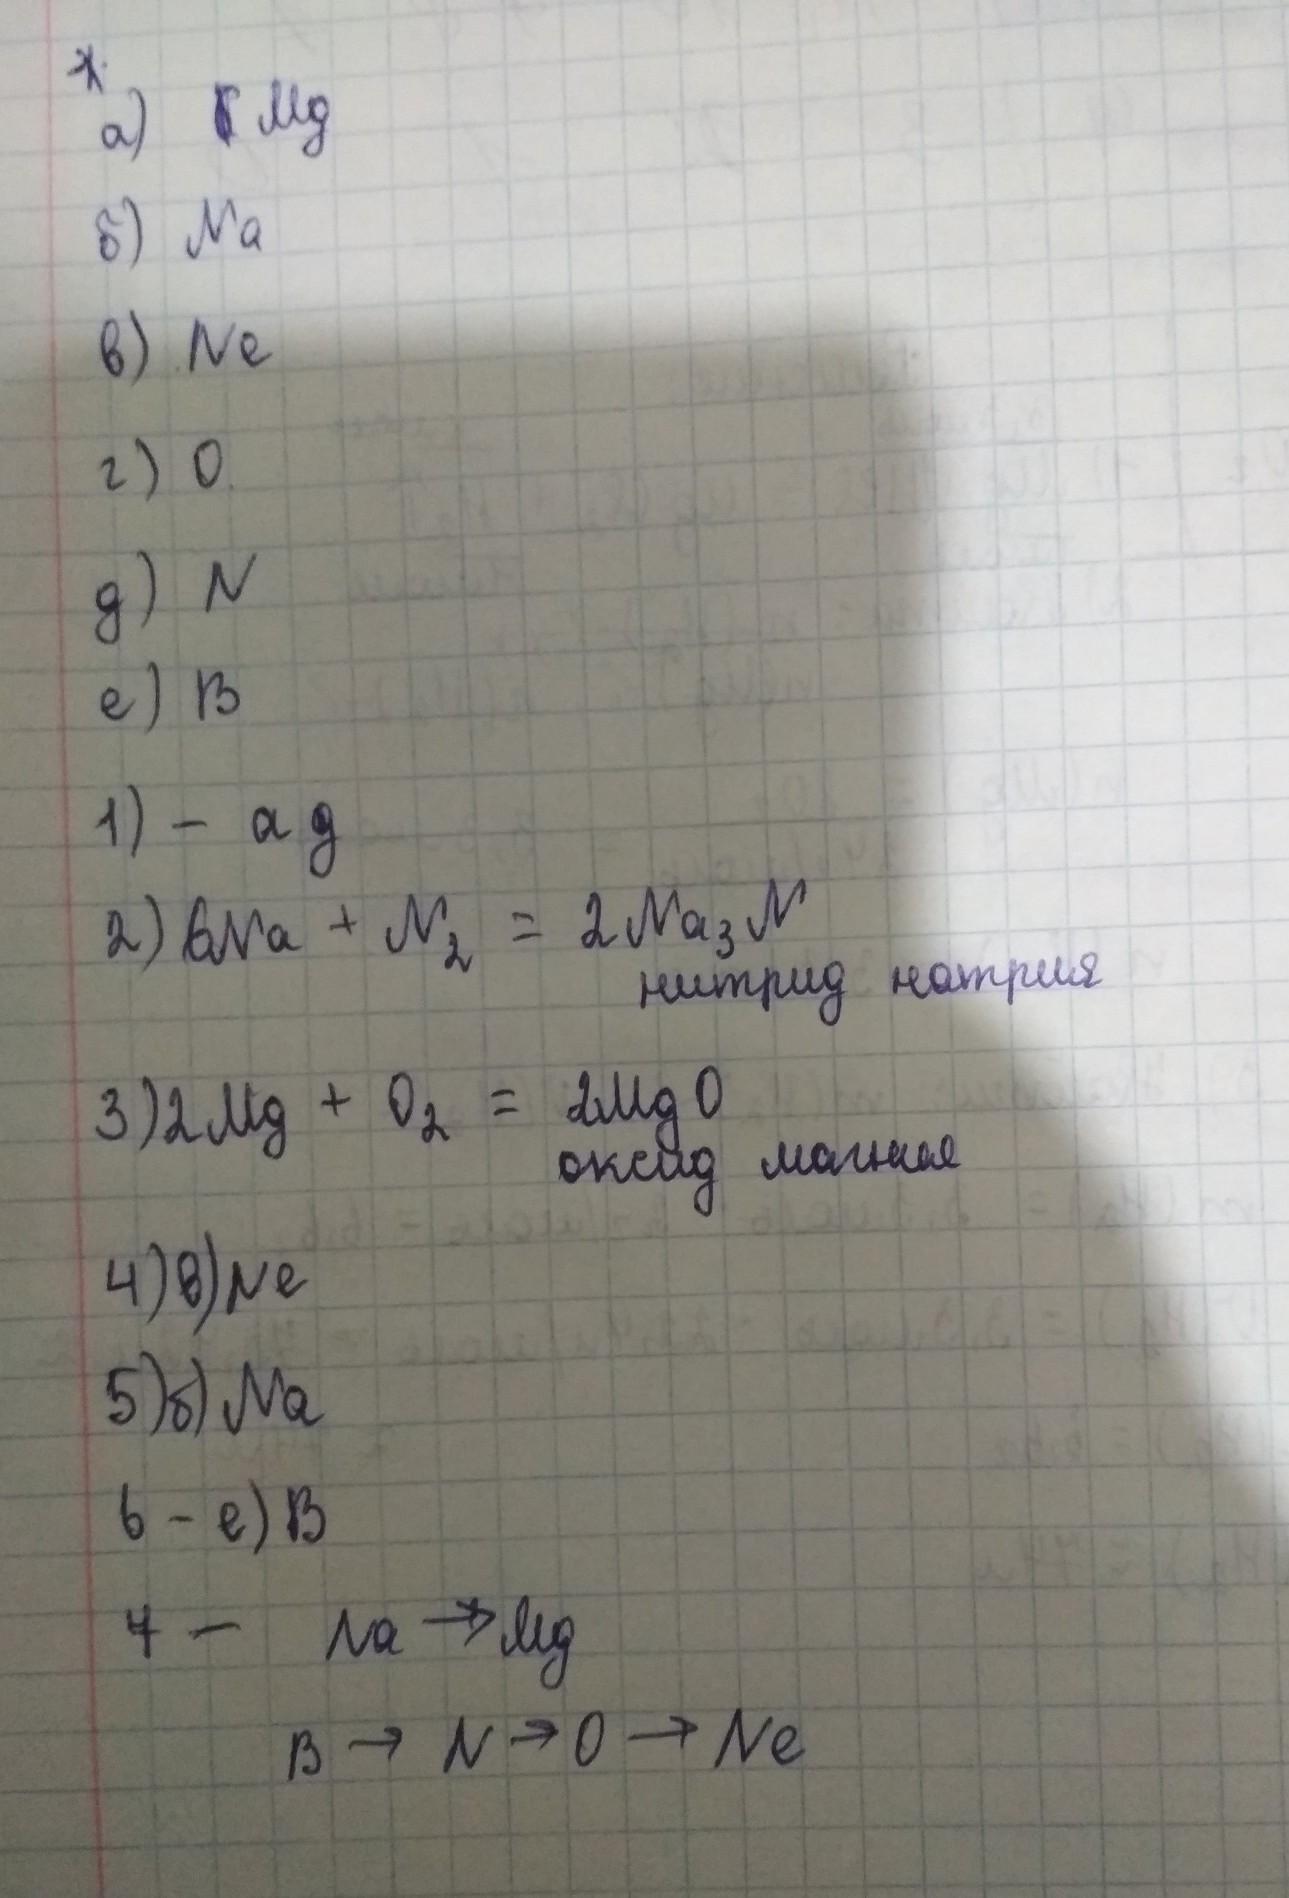 а) Mg
б) Na
в) Ne
г) O
д) N
е) B
1) – а д
2) 6Na + N₂ = 2Na₃N
нитрид натрия
3) 2Mg + O₂ = 2MgO
оксид магния
4) в) Ne
5) б) Na
6 – е) B
7 – Na → Mg
B → N → O → Ne